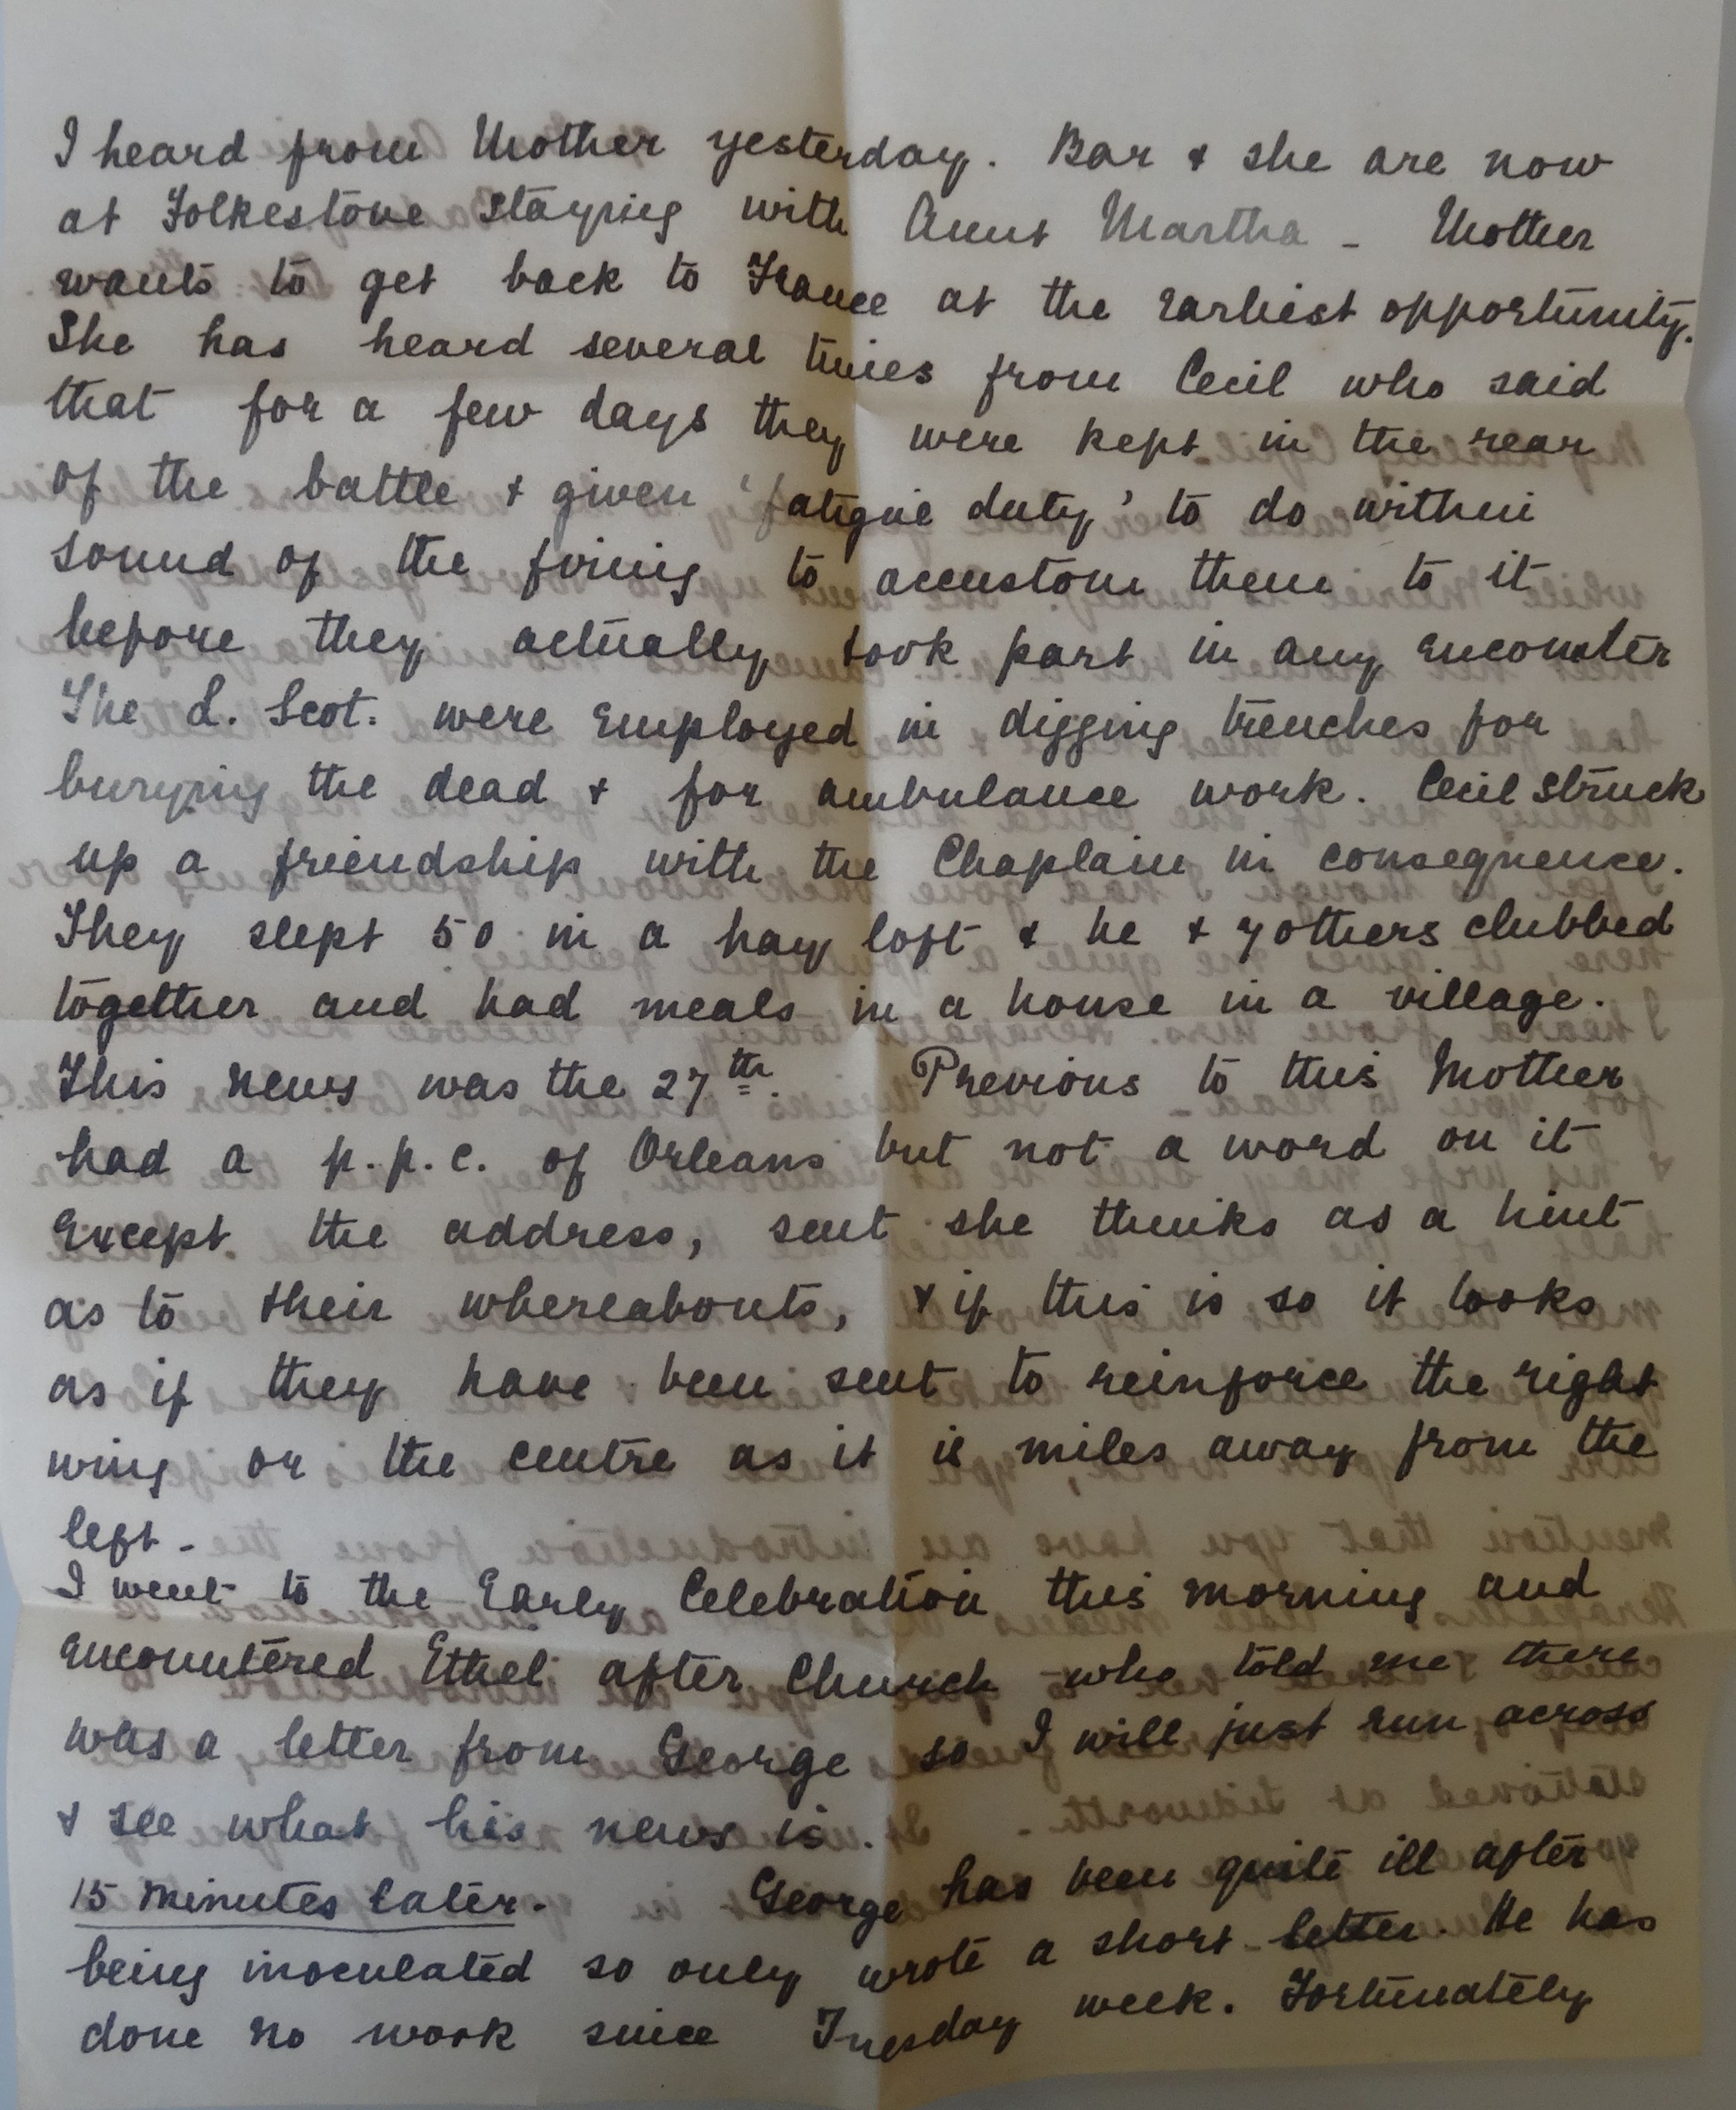 I heard from Mother yesterday. Bar & she are now
at Folkestone staying with Aunt Martha - Mother
wants to get back to France at the earliest opportunity.
She has heard several times from Cecil who said
that for a few days they were kept in the rear
of the battle & given 'fatigue duty' to do within
sound of the firing to accustom them to it
before they actually took part in any encounter
The L. Scot. were employed in digging trenches for
burying the dead & for ambulance work. Cecil struck
up a friendship with the Chaplain in consequence.
They slept 50 in a hay loft & he & 7 others clubbed
together and had meals in a house in a village.
This news was the 27th. Previous to this Mother
had a p.p.c. of Orleans but not a word on it
except the address, sent she thinks as a hint
as to their whereabouts, & if this is so it looks
as if they have been sent to reinforce the right
wing or the centre as it is miles away from the
left -
I went to the Early Celebration this morning and
encountered Ethel after Church who told me there
was a letter from George so I will just run across
& see what his news is.
15 minutes later. George has been quite ill after
being inoculated so only wrote a short letter. He has
done no work since Tuesday week. Fortunately